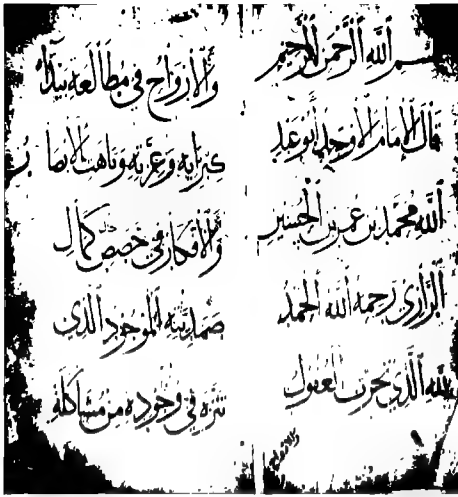 بسم الله الرحمن الرحيم
قال الإمام الاوحد أبو عبد
الله محمد بن عمر بن الحسين
الرازي رحمه الله الحمد
لله الذي تحيرت العقول
والارواح
والأرواح في مطالعة بيداء
كبريايه وعزته وتاهت الابصار
والأفكار في كمال
صمديته الموجود الذي
تنزه في وجوده من مشاكلة